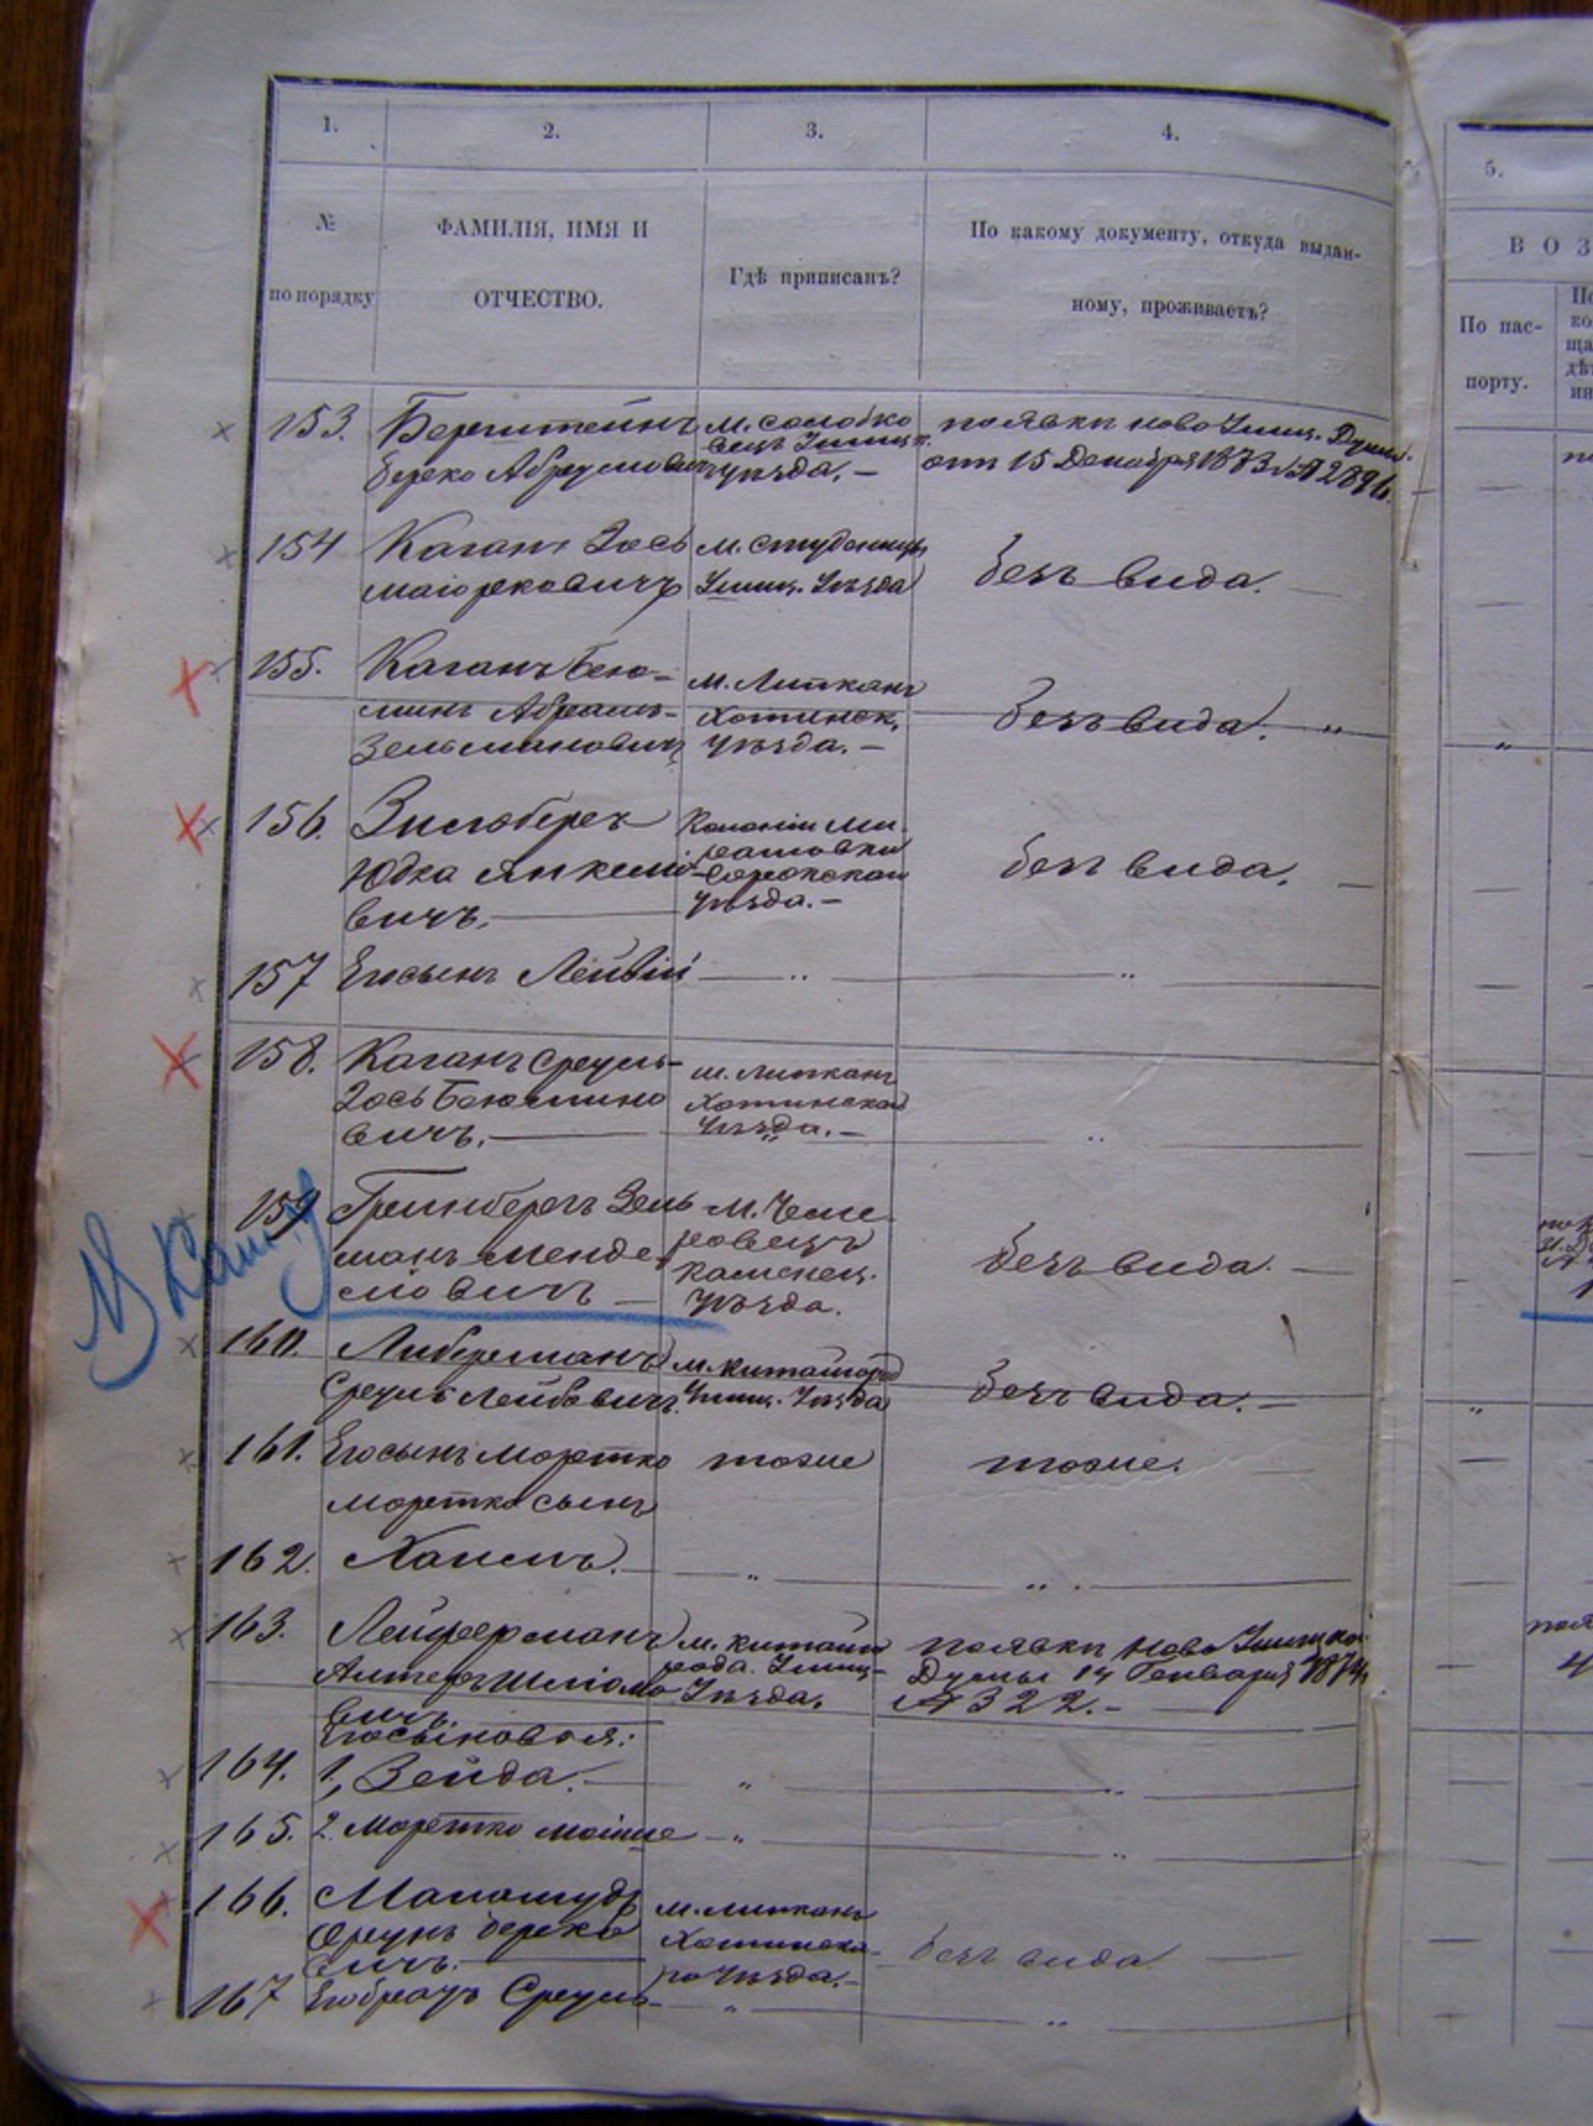 1. 2. 3. 4.
№ по порядку
ФАМИЛІЯ, ИМЯ И
ОТЧЕСТВО.
Гдѣ приписанъ?
По какому документу, откуда выдан-
ному, проживаетъ?
5.
ВОЗ
По пас-
порту.
153. Бернштейнъ
Берко Абрумовичъ
м. Солобко
вецъ Ушицк.
уѣзда. —
по явки Ново Ушиц. Думы
отъ 15 Декабря 1873 № 2896.
154 Каганъ Іось
Маіорковичъ
м. Студеницы
Ушиц. Уѣзда
безъ вида.
155. Каганъ Беню-
минъ Абрамъ-
Зельмановичъ
м. Липканъ
Хотинск.
уѣзда. —
безъ вида. "
156. Зильберъ
Юдка Янкеліо-
вичъ.
Колоніи
Сорокскаго
уѣзда. —
безъ вида.
157 Его сынъ Лейбій " "
158. Каганъ Сруль-
Іось Бенюмино
вичъ.
м. Липканъ
Хотинскаго
Уѣзда. —
"
159 Гринбергъ Зель
манъ Менде-
ліовичъ
м. Чеме
ровецъ
Каменец.
Уѣзда.
безъ вида. —
160. Либерманъ
Сруль Лейбовичъ.
м. Китайгород
Ушиц. Уѣзда
безъ вида. —
161. Его сынъ Мортко
Мортко сынъ
тоже
тоже.
162. Хаимъ. " "
163. Лейферманъ
Алтеръ Шліомо
вичъ.
м. Китайго
рода. Ушиц-
Уѣзда.
по явки Ново Ушицкой
Думы 14 Генваря 1874
№ 322. —
Его сыновья:
164. 1, Зейда. " "
165. 2. Мортко Моішe " "
166.
Срунъ Берко
вичъ.
м. Липканъ
Хотинска-
го Уѣзда. —
безъ вида
167 Его братъ Сруль " "